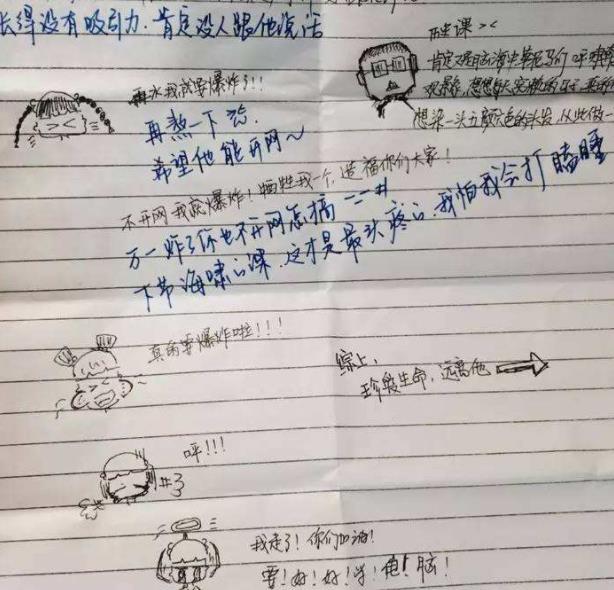 长得没有吸引力，肯定没人跟他说话
课 ><
肯定是脑海中草泥马们呼啸
想染一头五颜六色的头发，从此做一
再水我就要爆炸了!!!
再熬一下
希望他能开网~
不开网我就爆炸！牺牲我一个，造福你们大家！
万一炸了你也不开网怎搞 ==#
下节海啸的课，这才是最头疼的，我怕我会打瞌睡
真的要爆炸啦!!!
综上，
珍爱生命，远离他
呼!!!
#3
我走了！你们加油！
要！好！好！学！电！脑！